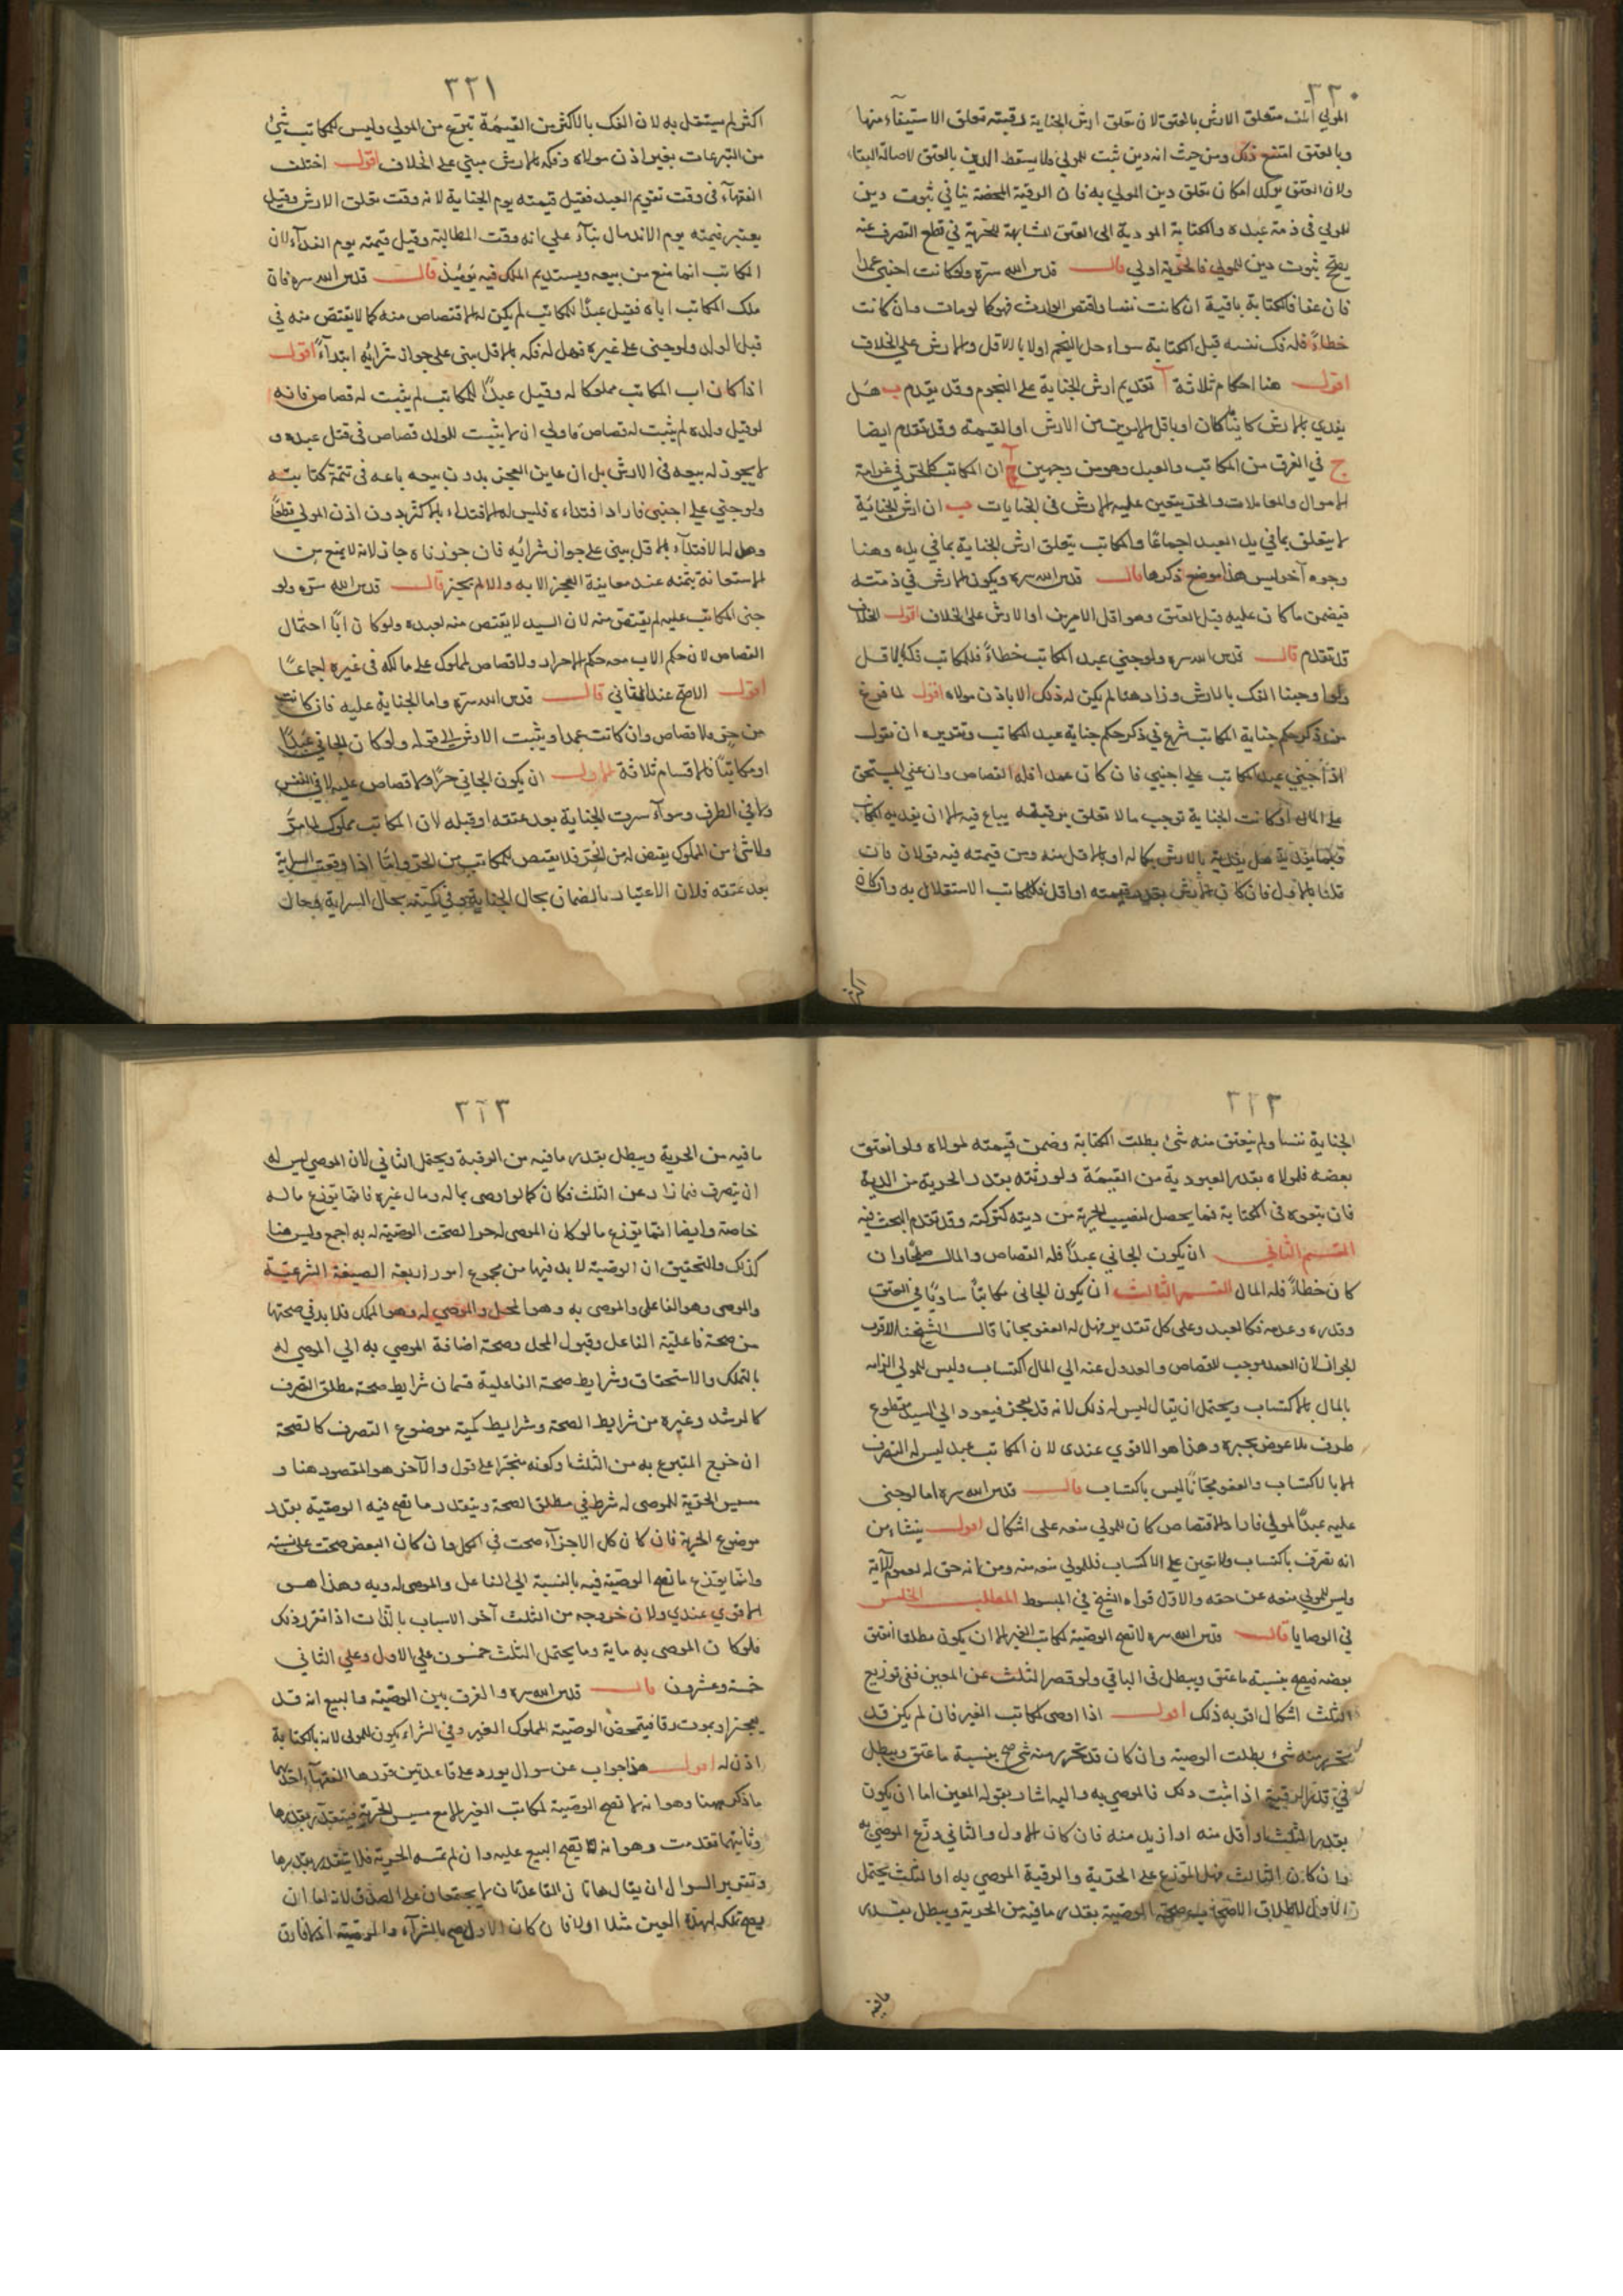 ٣٣٠
المولي اتلف متعلق الارش بالعتق لان تعلق ارش الجناية برقبته تعلق الاستيفاء منها
وبالعتق امتنع ذلك ومن حيث انه دين ثبت للمولي ولا يسقط الدين بالعتق لاصالة البقاء
ولان العتق يوكد امكان تعلق دين المولي به فان الرقية المحضة ينافي ثبوت دين
للمولي في ذمة عبده والكتابة المودية الي العتق المشابهة للحرية في قطع التصرف عنه
يصح ثبوت دين للمولي فالحرية اولي قال قدس الله سره ولو كانت اجنبي عمدا
فان عفا فالكتابة باقية ان كانت نفسا واقتص الوارث فهو كما لو مات وان كانت
خطاءً فله فك نفسه قبل الكتابة سواء حل النجم اولا بالاقل والارش علي الخلاف
اقول هنا احكام ثلاثة آ تقديم ارش الجناية علي النجوم وقد تقدم ب هل
يفدي بالارش كائنا ما كان او باقل الامرين من الارش او القيمة وقد تقدم ايضا
ج في الفرق بين المكاتب والعبد وهو من وجهين آ ان المكاتب كالحر في غرامة
الاموال والمعاملات والحر يتعين عليه الارش في الجنايات ب ان ارش الجناية
لا يتعلق بما في يد العبد اجماعًا والمكاتب يتعلق ارش الجناية بما في يده وهنا
وجوه آخر ليس هذا موضع ذكرها قال قدس الله سره ويكون الارش في ذمته
فيضمن ما كان عليه قبل العتق وهو اقل الامرين او الارش على الخلاف اقول الخلاف
قد تقدم قال قدس الله سره ولو جني عبد المكاتب خطاءً فللمكاتب فكه بالاقل
ولو اوجبنا الفك بالارش وزاد هنا لم يكن له ذلك الا باذن مولاه اقول لما فرغ
من ذكر حكم جناية المكاتب شرع في ذكر حكم جناية عبد المكاتب وتقريره ان نقول
اذا جني عبد المكاتب علي اجنبي فان كان عمدا فله القصاص وان عفي المستحق
علي المال او كانت الجناية توجب مالا تعلق برقبته يباع فيه الا ان يفديه المكاتب
فيما يفديه هل يفديه بالارش بكماله او بالاقل منه ومن قيمته فيه قولان فان
قلنا بالاول فان كان الارش بقدر قيمته او اقل فللمكاتب الاستقلال به وان كان
اكثر
٣٣١
اكثر لم يستقل به لان الفك بالاكثر من القيمة تبرع من المولي وليس للمكاتب شئ
من التبرعات بغير اذن مولاه وفكه بالارش مبني علي الخلاف اقول اختلف
الفقهاء في وقت تقويم العبد فقيل قيمته يوم الجناية لانه وقت تعلق الارش وقيل
يعتبر قيمته يوم الاندمال بناء علي انه وقت المطالبة وقيل قيمته يوم الفداء لان
المكاتب انما منع من بيعه ويستديم الملك فيه يومئذ قال قدس الله سره فان
ملك المكاتب اباه فقيل عبدًا للمكاتب لم يكن له الاقتصاص منه كما لا يقتص منه في
قبل الولد ولو جني علي غيره فهل له فكه بالاقل مبني علي جواز شرائه ابتداءً اقول
اذا كان اب المكاتب مملوكا له وقيل عبدًا للمكاتب لم يثبت له قصاص فانه
لو قيل ولده لم يثبت له قصاص فاولي ان لا يثبت للولد قصاص في قتل عبده و
لا يجوز له بيعه في الارش بل ان عاين العجز بدون بيعه باعه في تتمة كتابته
ولو جني علي اجنبي فاراد افتداءه فليس له الافتداء بالاكثر بدون اذن المولي قطعًا
وهل له الافتداء بالاقل يبني علي جواز شرائه فان جوزناه جاز لانه لا يمنع من
الاستعانة بثمنه عند معاينة العجز الا به والا لم يجز قال قدس الله سره ولو
جني المكاتب عليه لم يقتص منه لان السيد لا يقتص منه لعبده ولو كان ابًا احتمال
القصاص لان حكم الاب معه حكم الاحرار ولا قصاص لمملوك علي مالكه في غيره اجماعًا
اقول الاصح عندي الثاني قال قدس الله سره واما الجناية عليه فان كانت
من حر فلا قصاص وان كانت عمدا ويثبت الارش الا في قوله ولو كان الجاني عبدًا
او مكاتبًا فالاقسام ثلاثة الاول ان يكون الجاني حرًا فلا قصاص عليه لا في النفس
ولا في الطرف وسواء سرت الجناية بعد عتقه او قبله لان المكاتب مملوك لما مر
ولا شئ من المملوك يقتص له من الحر فلا يقتص للمكاتب من الحر واما اذا وقعت السراية
بعد عتقه فلان الاعتبار بالضمان بحال الجناية وفي كميته بحال السراية فحال
٣٢٢
الجناية نفسا ولم ينعتق منه شئ بطلت الكتابة وضمن قيمته لمولاه ولو انعتق
بعضه فلمولاه بقدر العبودية من القيمة ولورثته بقدر الحرية من الدية
فان بنحوه في الكتابة فما يحصل لنصيب الحرية من ديته كتركته وقد تقدم البحث فيه
القسم الثاني ان يكون الجاني عبدًا فله القصاص والمال صلحًا وان
كان خطاءً فله المال القسم الثالث ان يكون الجاني مكاتبًا ساويًا في العتق
وقدره وعدمه فكالعبد وعلي كل تقدير فهل له العفو مجانا قال الشيخنا الاقرب
الجواز لان العمد موجب للقصاص والعدول عنه الي المال اكتساب وليس للمولي الزامه
بالمال بالاكتساب ويحتمل ان يقال ليس له ذلك لانه قد يعجز فيعود الي السيد مقطوع
طرف بلا عوض يجبره وهذا هو الاقوي عندي لان المكاتب عبد ليس له التصرف
الا بالاكتساب والعفو مجانًا ليس باكتساب قال قدس الله سره اما لو جني
عليه عبدًا لمولي فاراد الاقتصاص كان للمولي منعه علي اشكال اقول ينشاء من
انه تصرف باكتساب ولا تعين علي الاكتساب فللمولي منعه منه ومن انه حق له لعموم الآية
وليس للمولي منعه عن حقه والاول قواه الشيخ في المبسوط المطلب الخامس
في الوصايا قال قدس الله سره لا تصح الوصية لمكاتب الغير الا ان يكون مطلقا انعتق
بعضه فيصح بنسبة ما عتق ويبطل في الباقي ولو قصر الثلث عن المعين ففي توزيع
الثلث اشكال اقربه ذلك اقول اذا اوصي لمكاتب الغير فان لم يكن قد
تحرر منه شئ بطلت الوصية وان كان قد تحرر منه شئ صح بنسبة ما عتق ويبطل
في قدر الرقية اذا ثبت ذلك فالموصي به واليه اشار بقوله المعين اما ان يكون
بقدر الثلث او اقل منه او ازيد منه فان كان الاول والثاني وزع الموصي به
وان كان الثالث فهل التوزع علي الحرية والرقية الموصي به او الثلث يحتمل
الاول لاطلاق الاصحاب صحة الوصية بقدر ما فيه من الحرية ويبطل بقدر
ما فيه
٣٢٣
ما فيه من الحرية ويبطل بقدر ما فيه من الرقية ويحتمل الثاني لان الموصي ليس له
ان يتصرف فيما زاد عن الثلث فكان كما لو اوصي بماله ومال غيره فانما يوزع ماله
خاصة وايضا انما يوزع ما لو كان الموصي له حرا لصحت الوصية له به اجمع وليس هنا
كذلك والتحقيق ان الوصية لا بد فيها من مجموع امور اربعة الصيغة الشرعية
والموصي وهو الفاعلي والموصي به وهو المحل والموصي له وهو الملك فلا بد في صحتها
من صحة فاعلية الفاعل وقبول المحل وصحة اضافة الموصي به الي الموصي له
بالتملك والاستحقاق وشرايط صحة الفاعلية قسمان شرايط صحة مطلق التصرف
كالرشد وغيره من شرايط الصحة وشرايط كمية موضوع التصرف كالصحة
ان خرج المتبرع به من الثلث او كونه منجزا علي قول والآخر هو المقصود هنا و
مسيس الحرية للموصي له شرط في مطلق الصحة ويتقدر ما تصح فيه الوصية بقدر
موضوع الحرية فان كان كل الاجزاء صحت في الكل وان كان البعض صحت علي نسبته
وانما يوزع ما تصح الوصية فيه بالنسبة الي الفاعل والموصي له وبه وهذا هو
الاقوي عندي ولان خروجه من الثلث آخر الاسباب بالذات اذا تقرر ذلك
فلو كان الموصي به ماية وما يحتمل الثلث خمسون علي الاول وعلي الثاني
خمسة وعشرون قال قدس الله سره والفرق بين الوصية والبيع انه قد
يعجز او يموت رقا فيتمحض الوصية لمملوك الغير وفي الشراء يكون للمولي لانه بالكتابة
اذن له اقول هذا جواب عن سوال يورد علي قاعدتين قررها الفقهاء احديهما
ما ذكر ههنا وهو انه لا تصح الوصية لمكاتب الغير الا مع مسيس الحرية فيتقدر بقدرها
وثانيهما تقدمت وهو انه يصح البيع عليه وان لم تمسه الحرية فلا يتقدر بقدرها
وتقرير السوال ان يقال هاتان القاعدتان لا يجتمعان علي الصدق لانه اما ان
يصح تملكه لهذه العين مثلا اولا فان كان الاول صح بالشراء والوصية اذ لا فارق